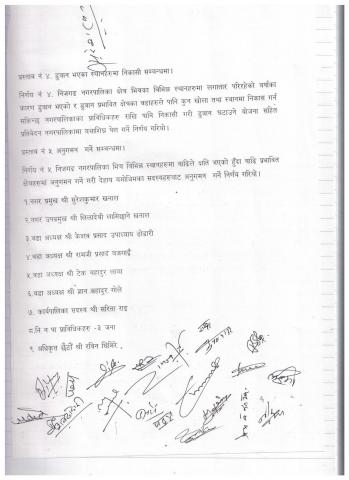 प्रस्ताव नं ४. डुवान भएका स्थानहरुमा निकासी सम्बन्धमा।
निर्णय नं ४. निजगढ नगरपालिका क्षेत्र भित्रका विभिन्न स्थानहरुमा लगातार परिरहेको वर्षाका
कारण डुवान भएको र डुवान प्रभावित क्षेत्रका वडाहरुले पानि कुन खोला तथा स्थानमा निकास गर्न
सकिन्छ नगरपालिकाका प्राविधिकहरु राखि पानि निकासी गरी डुवान घटाउने योजना सहित
प्रतिवेदन नगरपालिकामा यथाशिघ्र पेश गर्ने निर्णय गरियो।
प्रस्ताव नं ५ अनुगमन गर्ने सम्बन्धमा।
निर्णय नं ५ निजगढ नगरपालिका भित्र विभिन्न स्थानहरुमा बाढिले क्षति भएको हुँदा बाढि प्रभावित
क्षेत्रहरुमा अनुगमन गर्ने गरी देहाय बमोजिमका सदस्यहरुबाट अनुगमन गर्ने निर्णय गरियो।
१.नगर प्रमुख श्री सुरेशकुमार खनाल
२.नगर उपप्रमुख श्री लिलादेवी लामिछाने खनाल
३.वडा अध्यक्ष श्री केशव प्रसाद उपाध्याय
४.वडा अध्यक्ष श्री रामजी प्रसाद बजगाईं
५.वडा अध्यक्ष श्री टेक बहादुर
६.वडा अध्यक्ष श्री ज्ञान बहादुर गोले
७. कार्यपालिका सदस्य श्री सरिता राइ
८.नि न पा प्राविधिकहरु -३ जना
९. अधिकृत छैठौं श्री रविन घिमिरे,